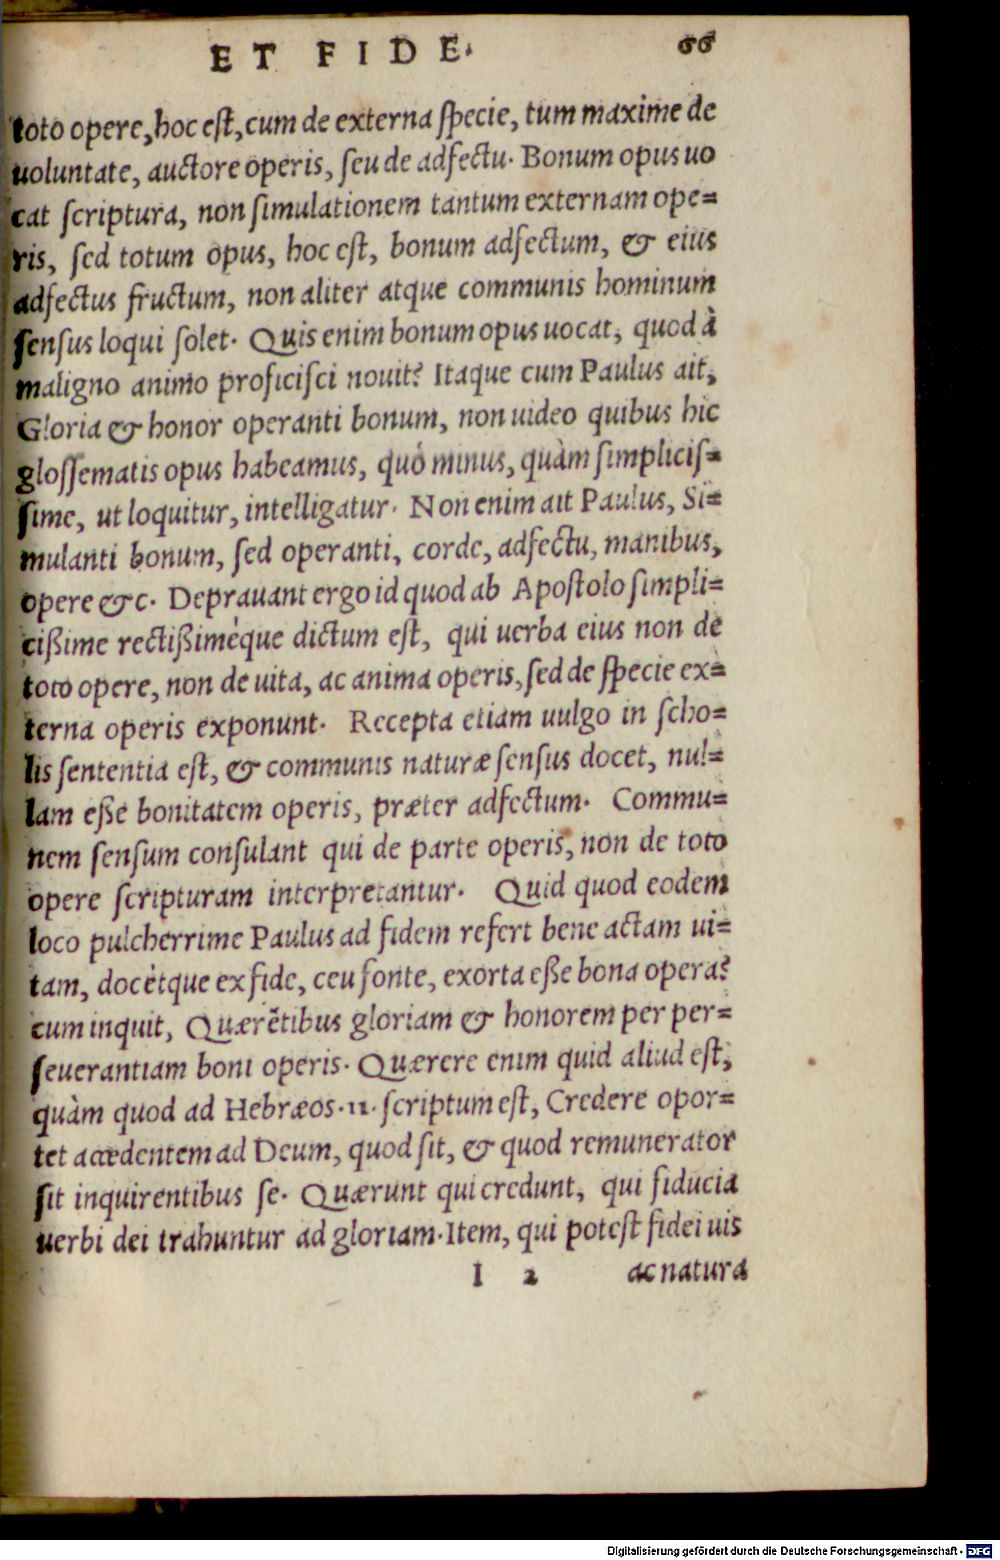 ET FIDE. 66
toto opere, hoc eſt, cum de externa ſpecie, tum maxime de
uoluntate, auctore operis, ſeu de adfectu. Bonum opus uo
cat ſcriptura, non ſimulationem tantum externam ope=
ris, ſed totum opus, hoc eſt, bonum adfectum, & eius
adfectus fructum, non aliter atque communis hominum
ſenſus loqui ſolet. Quis enim bonum opus uocat, quod à
maligno animo proficiſci nouit? Itaque cum Paulus ait,
Gloria & honor operanti bonum, non uideo quibus hic
gloſſematis opus habeamus, quó minus, quàm ſimpliciſ=
ſime, ut loquitur, intelligatur. Non enim ait Paulus, Si=
mulanti bonum, ſed operanti, corde, adfectu, manibus,
opere &c. Deprauant ergo id quod ab Apoſtolo ſimpli=
cißime rectißiméque dictum eſt, qui uerba eius non de
toto opere, non de uita, ac anima operis, ſed de ſpecie ex=
terna operis exponunt. Recepta etiam uulgo in ſcho=
lis ſententia eſt, & communis naturæ ſenſus docet, nul=
lam eße bonitatem operis, præter adfectum. Commu=
nem ſenſum conſulant qui de parte operis, non de toto
opere ſcripturam interpretantur. Quid quod eodem
loco pulcherrime Paulus ad fidem refert bene actam ui=
tam, docétque ex fide, ceu fonte, exorta eße bona opera?
cum inquit, Quærẽtibus gloriam & honorem per per=
ſeuerantiam boni operis. Quærere enim quid aliud eſt,
quàm quod ad Hebræos .11. ſcriptum eſt, Credere opor=
tet accedentem ad Deum, quod ſit, & quod remunerator
ſit inquirentibus ſe. Quærunt qui credunt, qui fiducia
uerbi dei trahuntur ad gloriam. Item, qui poteſt fidei uis
I 2 ac natura
Digitalisierung gefördert durch die Deutsche Forschungsgemeinschaft - DFG